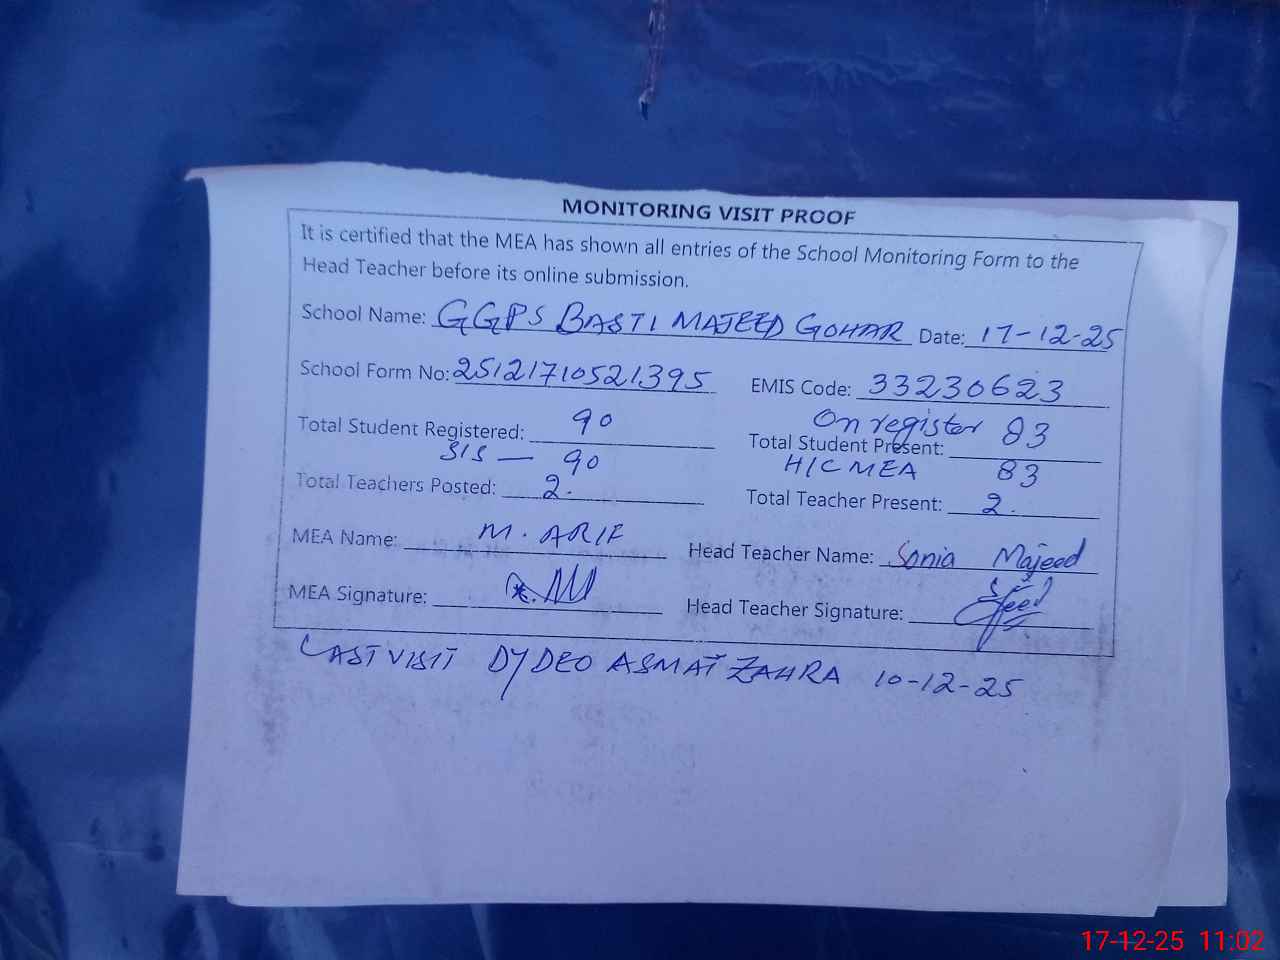 MONITORING VISIT PROOF
It is certified that the MEA has shown all entries of the School Monitoring Form to the
Head Teacher before its online submission.
School Name: GGPS BASTI MAJEED GOHAR Date: 17-12-25
School Form No: 25121710521395 EMIS Code: 33230623
Total Student Registered: 90 On register 83
Total Student Present:
SIS — 90 H/C MEA 83
Total Teachers Posted: 2. Total Teacher Present: 2.
MEA Name: M. ARIF Head Teacher Name: Sonia Majeed
MEA Signature: Head Teacher Signature:
LAST VISIT DYDEO ASMAT ZAHRA 10-12-25
17-12-25 11:02